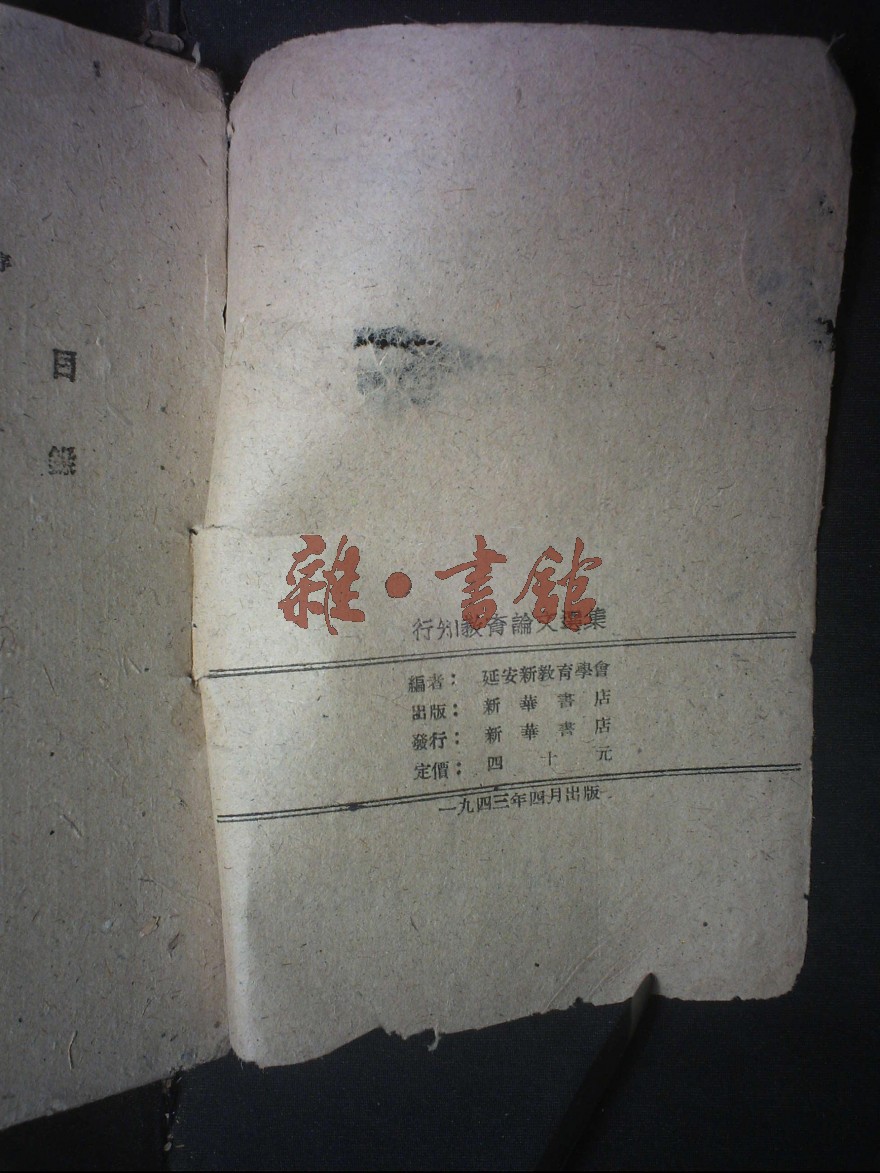 目錄
雜·書館
行知教育論文選集
編者：延安新教育學會
出版：新華書店
發行：新華書店
定價：四十元
一九四三年四月出版